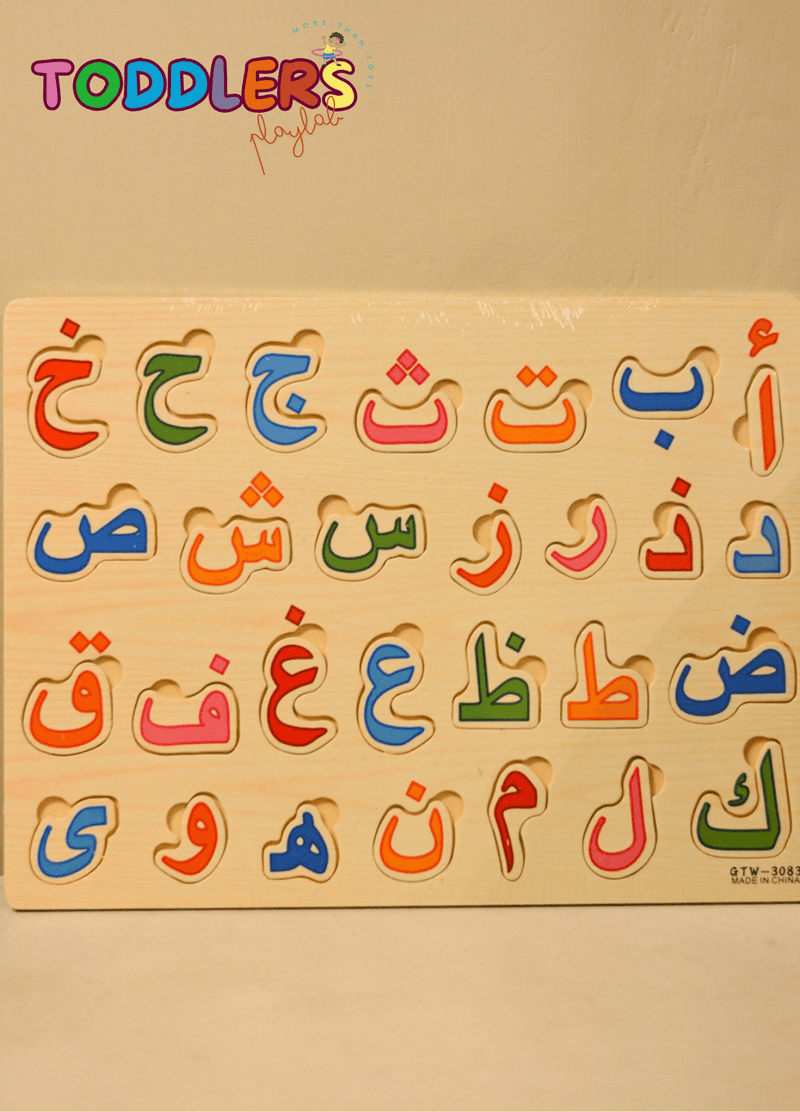 MORE THAN TOYS
TODDLERS
playlab
أ ب ت ث ج ح خ
د ذ ر ز س ش ص
ض ط ظ ع غ ف ق
ك ل م ن ه و ى
GTW-3083
MADE IN CHINA